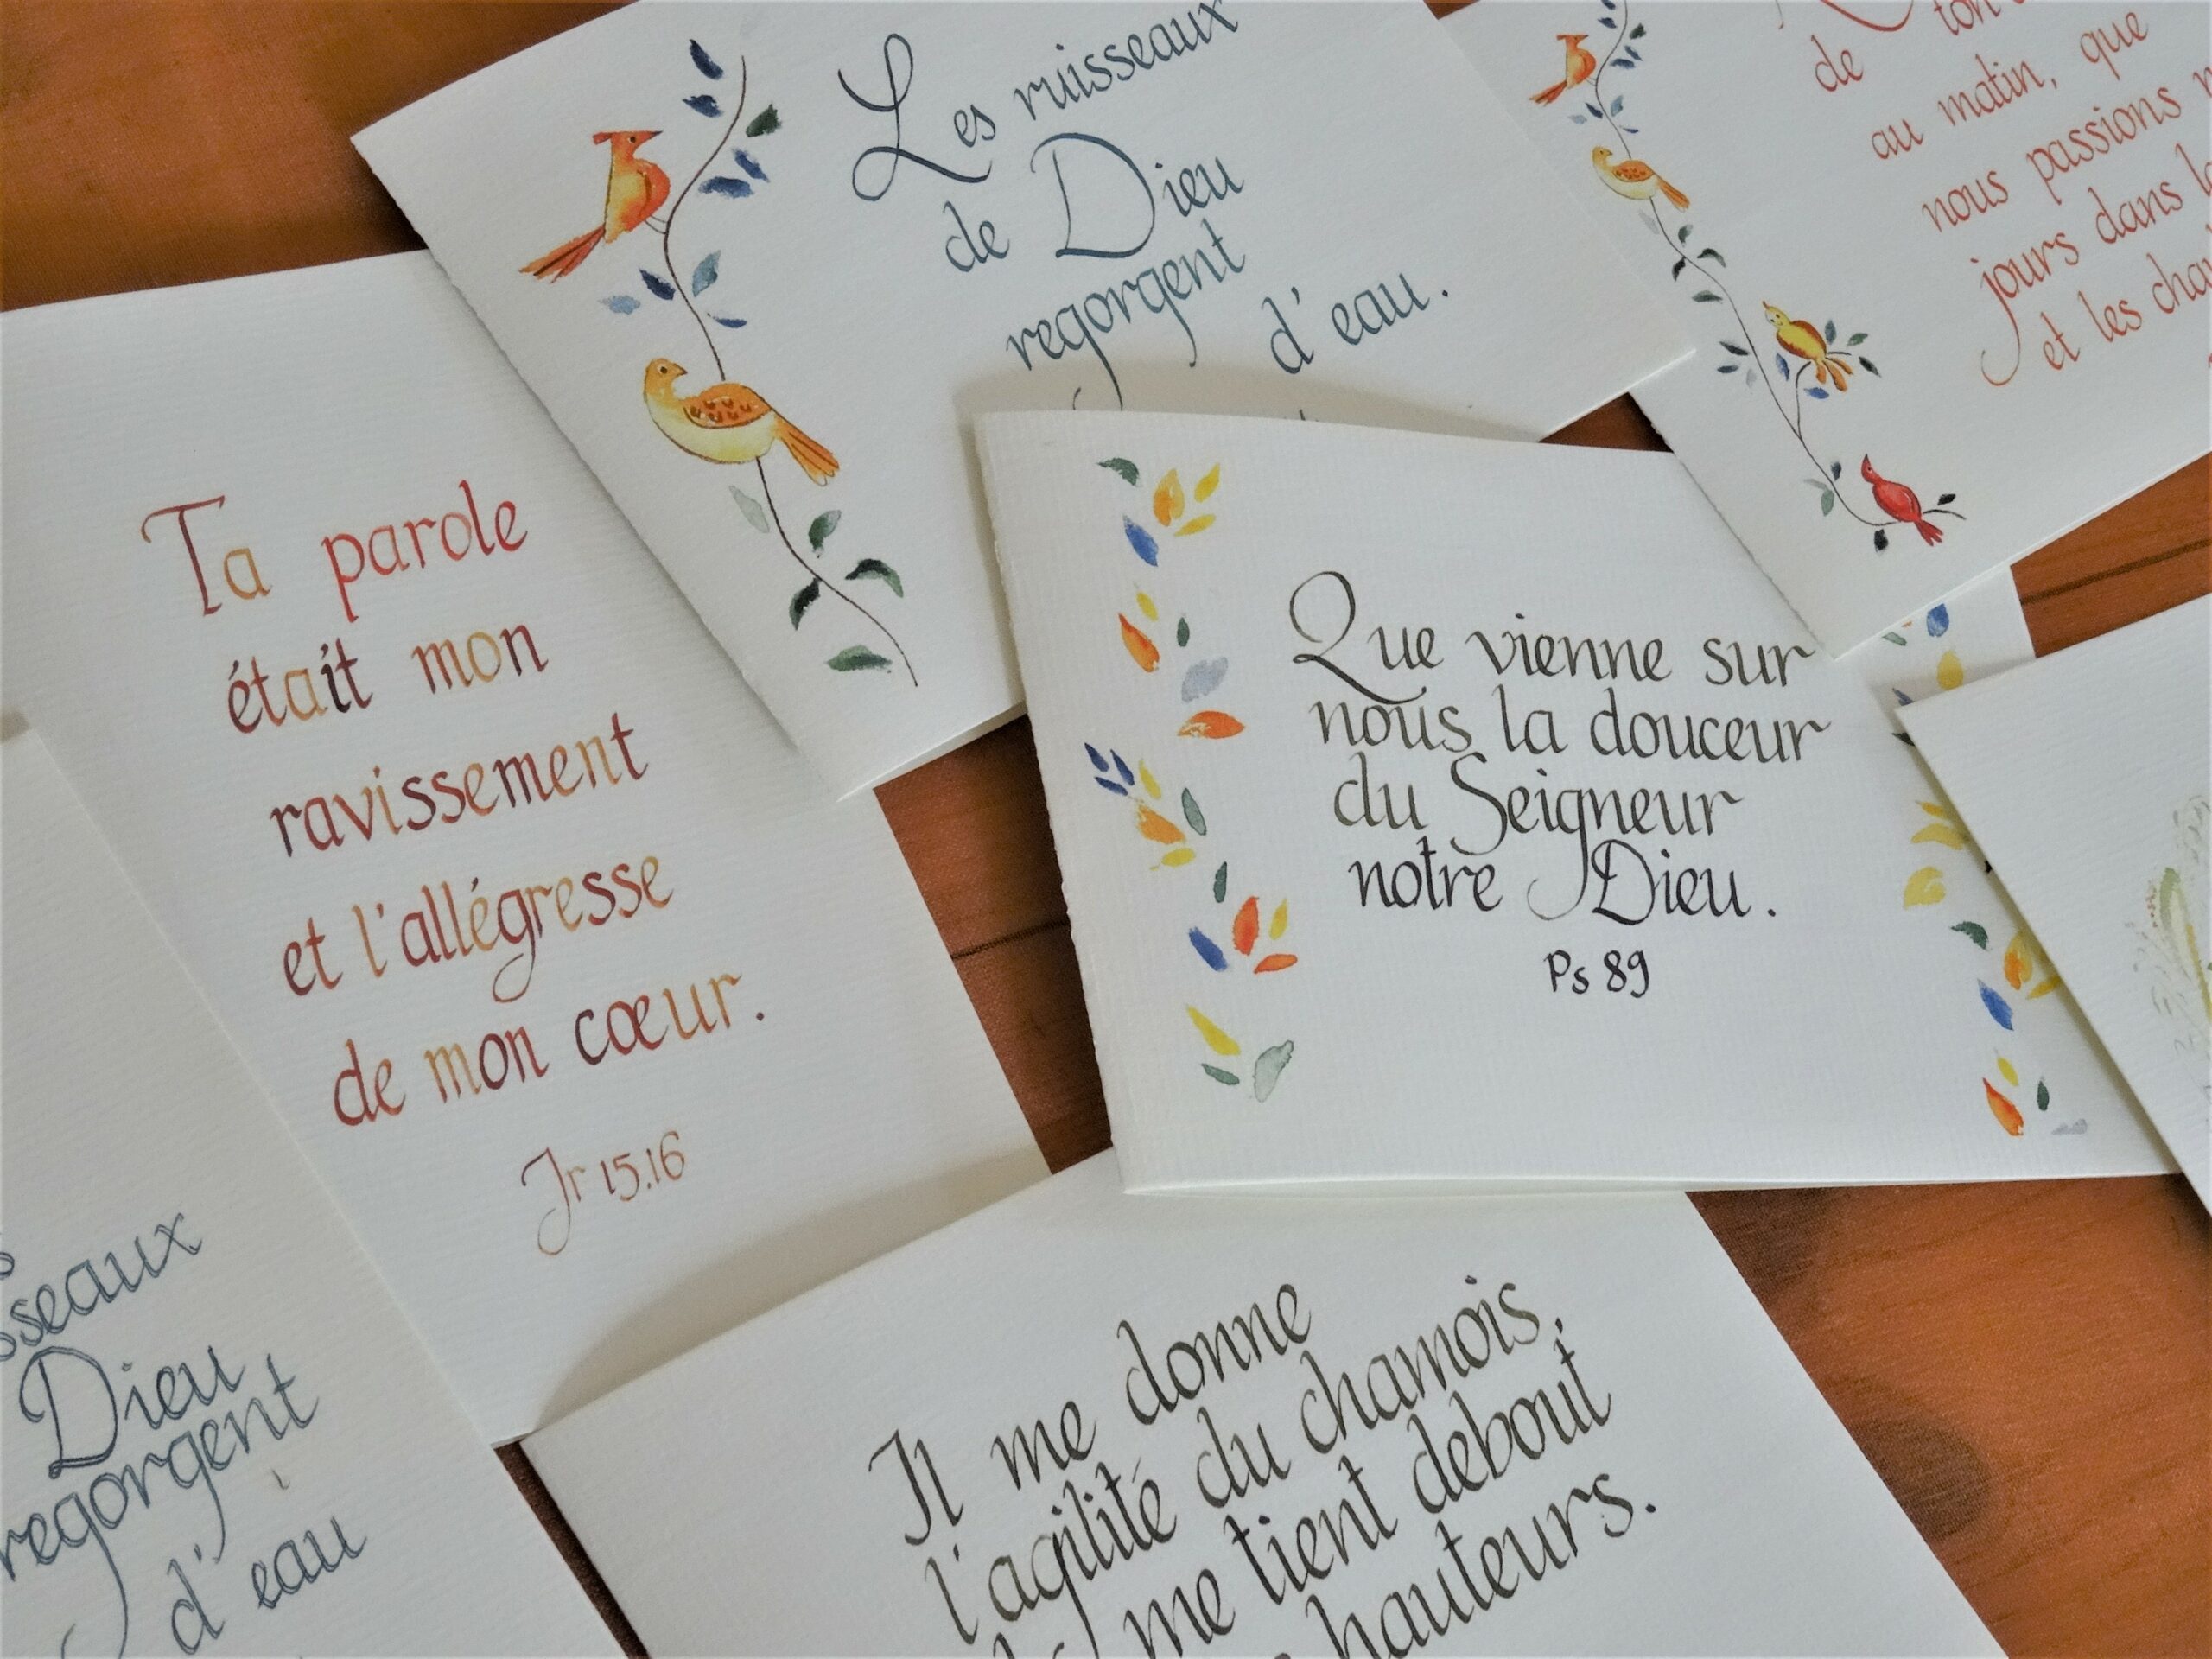 Les ruisseaux
de Dieu
regorgent
d'eau.
de ton
au matin, que
nous passions
jours dans
et les
Ta parole
était mon
ravissement
et l'allégresse
de mon cœur.
Jr 15.16
Que vienne sur
nous la douceur
du Seigneur
notre Dieu.
Ps 89
sseaux
Dieu
regorgent
d'eau
Il me donne
l'agilité du chamois,
me tient debout
hauteurs.